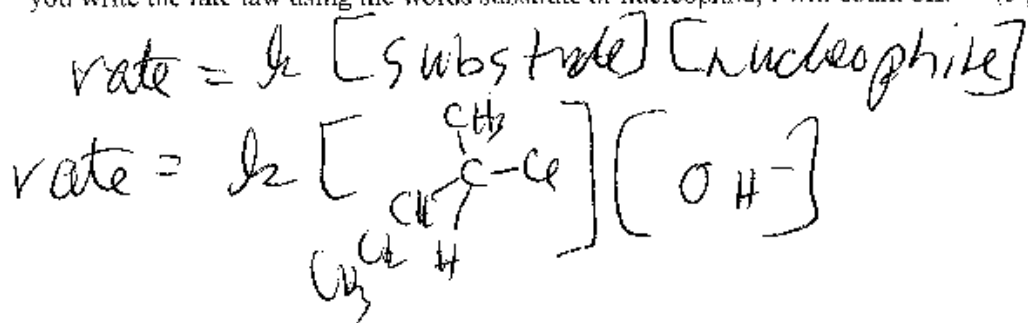 you write the rate law using the words substrate or nucleophile, I will
rate = k [Substrate] [Nucleophile]
rate = k [
CH3
C-Cl
CH
H
CH3
] [OH-]